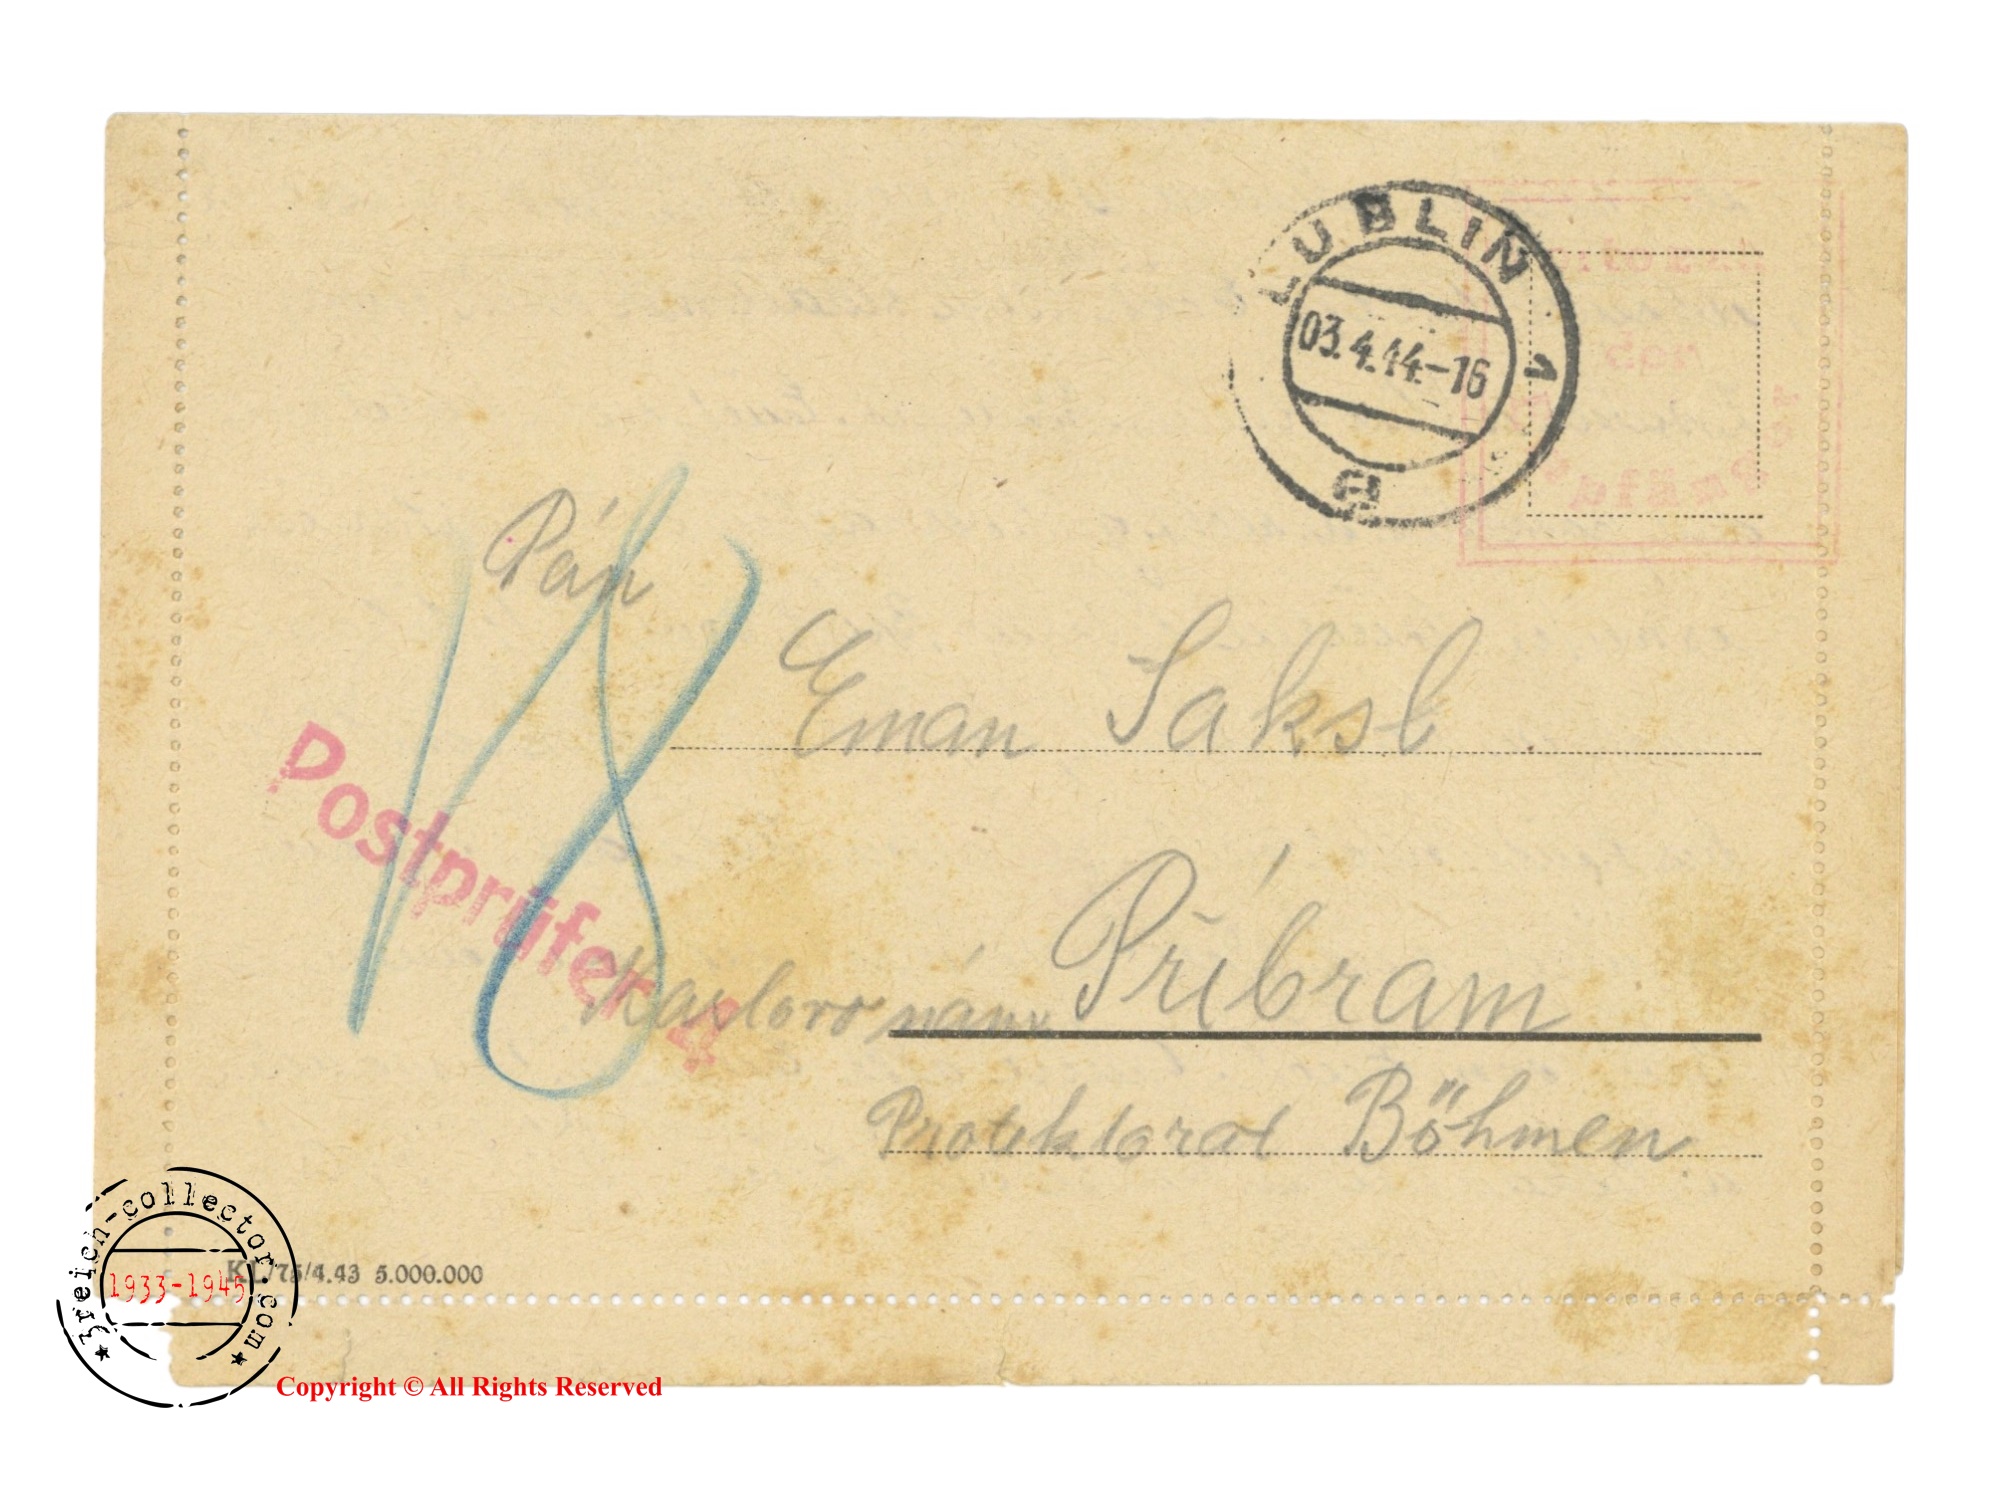 LUBLIN 1
03.4.44.-16
a
Pán
18
Eman Saksl
Postprüfer 4
Příbram
Protektorat Böhmen
KL/75/4.43 5.000.000
3reich-collector.com
1933-1945
Copyright © All Rights Reserved